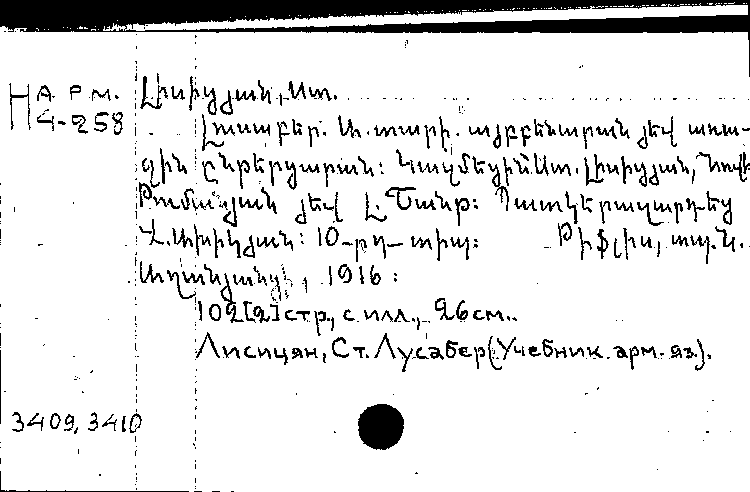 Н АРМ. Լիսիցյան, Ստ.
4-258 Լուսաբեր. Ա. տարի. այբբենարան յեվ առա-
ջին ընթերցարան: Կազմեցին Ստ. Լիսիցյան, Հովհ
Թումանյան յեվ Լ. Շանթ: Պատկերազարդեց
Վ. Ախիկյան: 10-րդ տիպ: Թիֆլիս, տպ. Ն.
Աղանյանցի, 1916:
102[2] стр., с илл., 26см.
Лисицян, Ст. Лусабер (Учебник арм. яз.).
3409, 3410